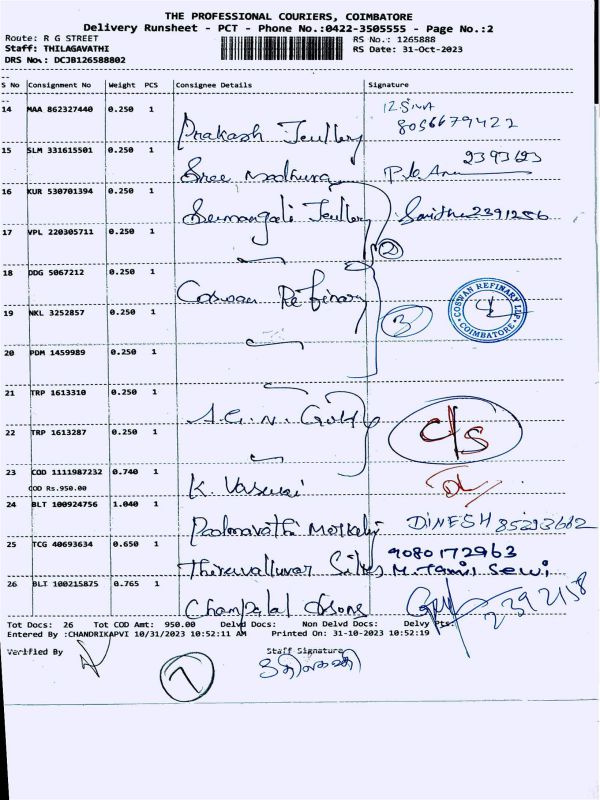 THE PROFESSIONAL COURIERS, COIMBATORE
Delivery Runsheet - PCT - Phone No.:0422-3505555 - Page No.:2
Route: R G STREET
RS No.: 1265888
Staff: THILAGAVATHI
RS Date: 31-Oct-2023
DRS No.: DCJB126588802
S No Consignment No Weight PCS Consignee Details Signature
14 MAA 862327440 0.250 1 Prakash Jeullery
8056679422
15 SLM 331615501 0.250 1 Sree Madhura 2393623
16 KUR 530701394 0.250 1 Sumangali Jeullery 2391256
17 VPL 220305711 0.250 1
2
18 DDG 5067212 0.250 1 Coswan Refinary
COSWAN REFINARY LLP COIMBATORE
19 NKL 3252857 0.250 1 3
20 PDM 1459989 0.250 1
21 TRP 1613310 0.250 1 Gold
C/S
22 TRP 1613287 0.250 1
23 COD 1111987232 0.740 1 K. Vasuvai
COD Rs.950.00
24 BLT 100924756 1.040 1 Padmavathi DINESH
25 TCG 40693634 0.650 1 Thiruvalluvar Silks
9080172963
M. Tamil Selvi
26 BLT 100215875 0.765 1 Champalal &sons 2392158
Tot Docs: 26 Tot COD Amt: 950.00 Delvd Docs: Non Delvd Docs: Delvy Pts:
Entered By :CHANDRIKAPVI 10/31/2023 10:52:11 AM Printed On: 31-10-2023 10:52:19
Verified By Staff Signature
7